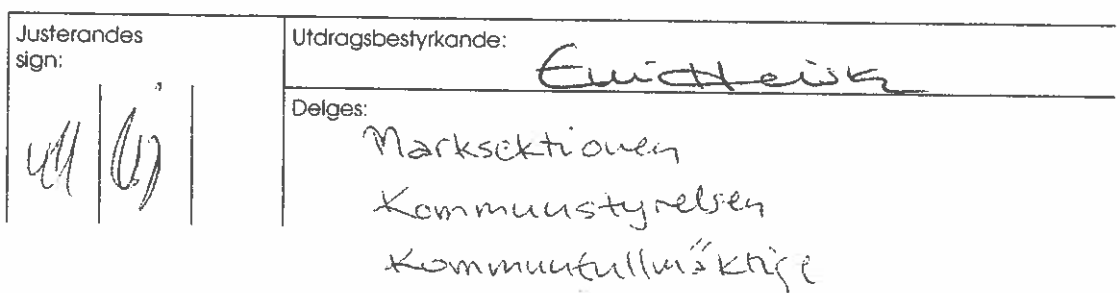 Justerandes
sign:
Utdragsbestyrkande:
Delges:
Marksektionen
Kommunstyrelsen
Kommunfullmäktige